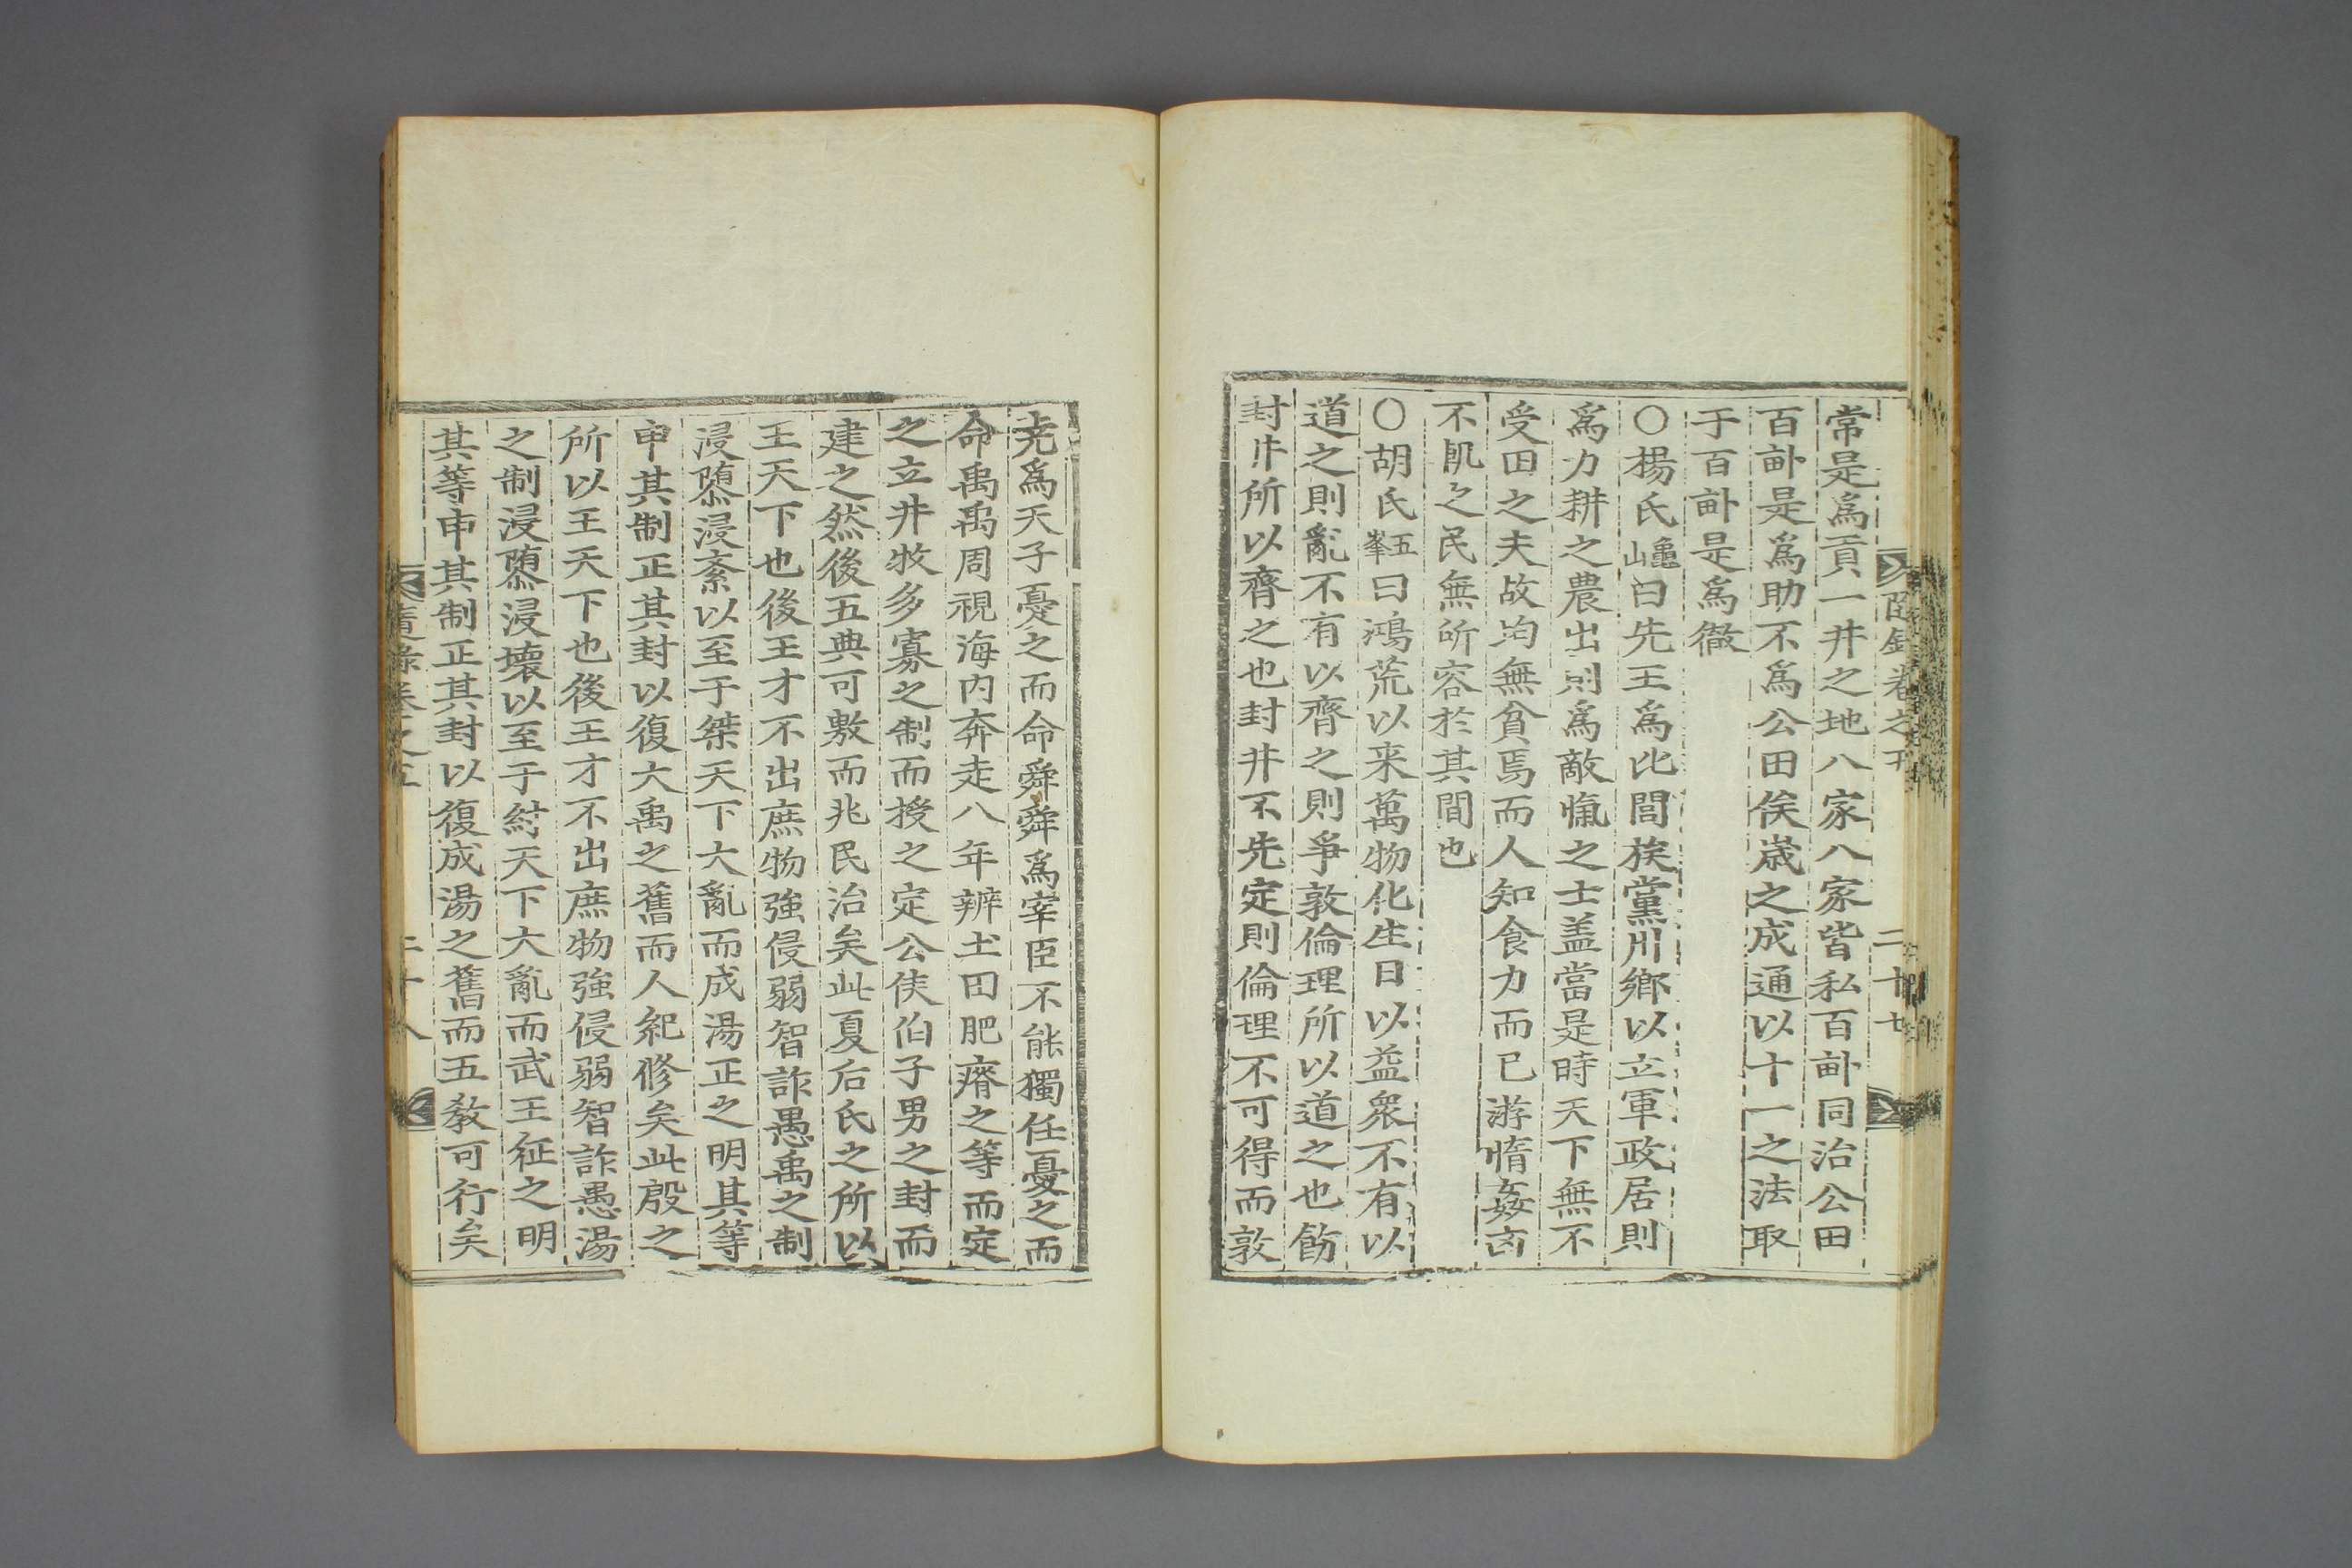 常是爲貢一井之地八家八家皆私百畝同治公田
百畝是爲助不爲公田俟歲之成通以十一之法取
于百畝是爲徹
○楊氏龜山曰先王爲比閭族黨州鄕以立軍政居則
爲力耕之農出則爲敵愾之士盖當是時天下無不
受田之夫故均無貧焉而人知食力而已游惰姦凶
不軌之民無所容於其間也
○胡氏五峯曰鴻荒以来萬物化生日以益衆不有以
道之則亂不有以齊之則爭敦倫理所以道之也飭
封井所以齊之也封井不先定則倫理不可得而敦
堯爲天子憂之而命舜舜爲宰臣不能獨任憂之而
命禹禹周視海内奔走八年辨土田肥瘠之等而定
之立井牧多寡之制而授之定公侯伯子男之封而
建之然後五典可敷而兆民治矣此夏后氏之所以
王天下也後王才不出庶物強侵弱智詐愚禹之制
浸隳浸紊以至于桀天下大亂而成湯正之明其等
申其制正其封以復大禹之舊而人紀修矣此殷之
所以王天下也後王才不出庶物強侵弱智詐愚湯
之制浸隳浸壞以至于紂天下大亂而武王征之明
其等申其制正其封以復成湯之舊而五敎可行矣
錄卷之五
二十七
二十八